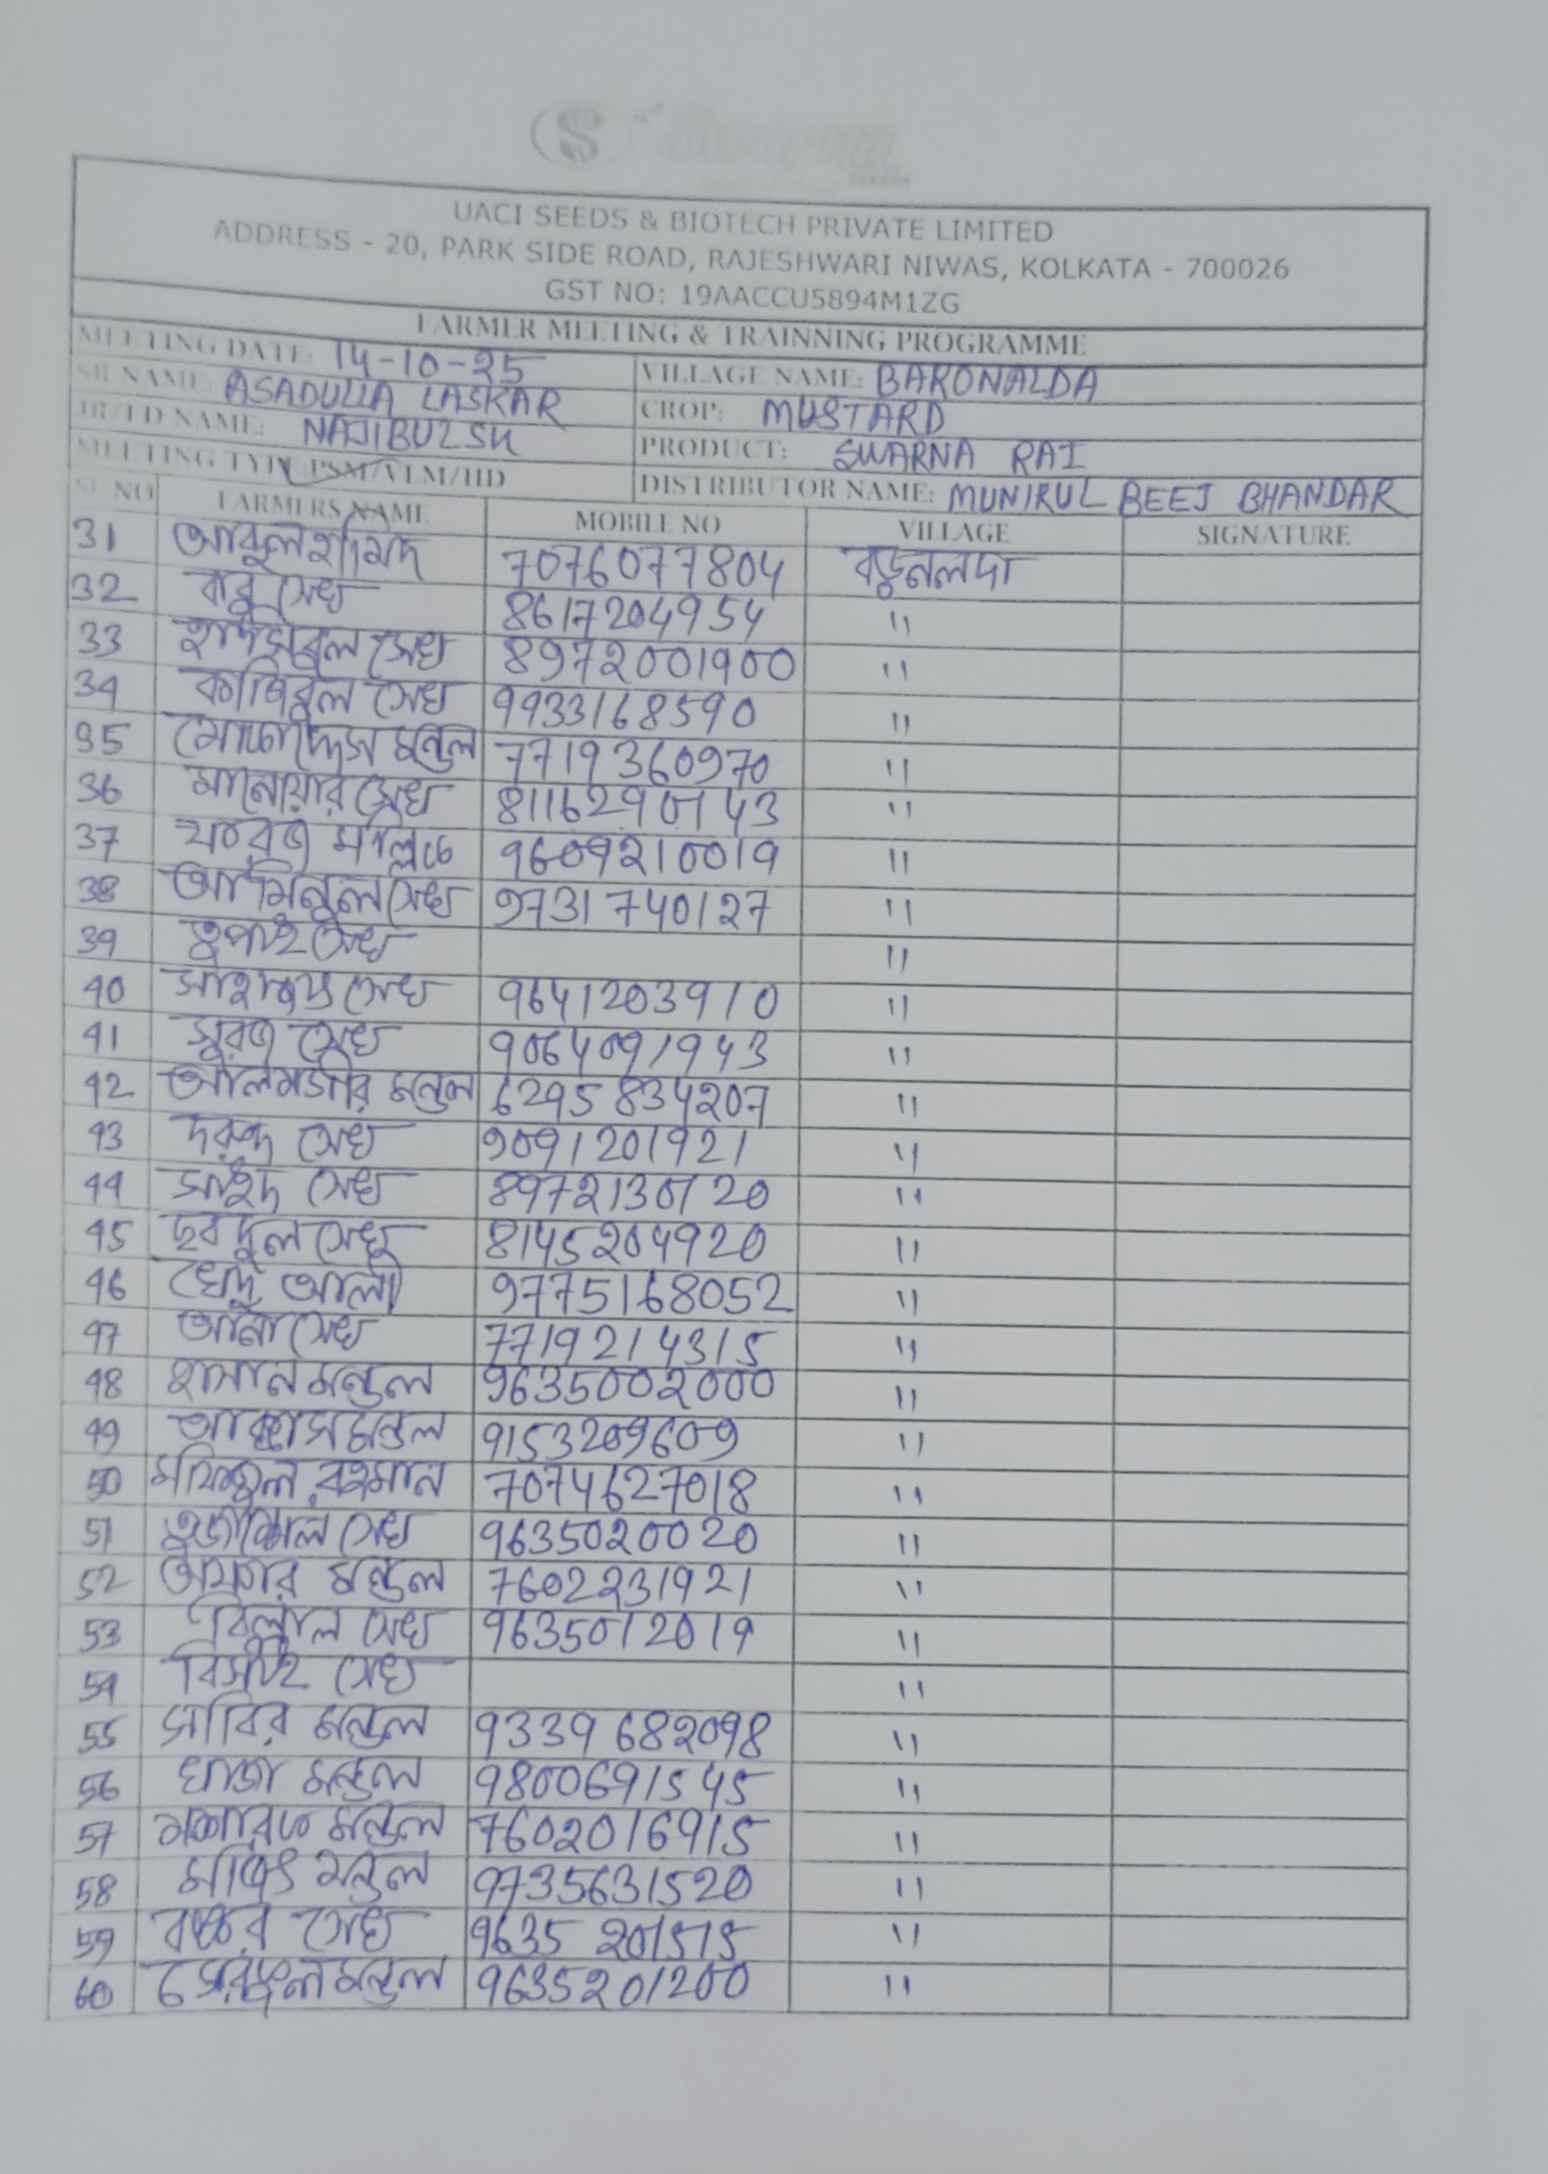 UACI SEEDS & BIOTECH PRIVATE LIMITED
ADDRESS - 20, PARK SIDE ROAD, RAJESHWARI NIWAS, KOLKATA - 700026
GST NO: 19AACCU5894M1ZG
FARMER MEETING & TRAINNING PROGRAMME
MEETING DATE: 14-10-25 VILLAGE NAME: BARONALDA
SR NAME: ASADULLA LASKAR CROP: MUSTARD
JR/FD NAME: NAJIBUL SK PRODUCT: SWARNA RAI
MEETING TYPE PSM/VLM/HD DISTRIBUTOR NAME: MUNIRUL BEEJ BHANDAR
SL NO FARMERS NAME MOBILE NO VILLAGE SIGNATURE
31 আবুল হামিদ 7076077804 বড়নলদা
32 বাবু সেখ 8617204954 "
33 সেখ 8972001900 "
34 কাজিবুল সেখ 9933168590 "
35 মন্ডল 7719360970 "
36 মানোয়ার সেখ 8116290143 "
37 মল্লিক 9609210019 "
38 আমিনুল সেখ 9731740127 "
39 সেখ "
40 সেখ 9641203910 "
41 সুরজ সেখ 9064091943 "
42 আলমগীর মন্ডল 6295834207 "
43 সেখ 9091201921 "
44 সাইদ সেখ 8972130120 "
45 ছবদুল সেখ 8145204920 "
46 খেদু আলী 9775168052 "
47 আনা সেখ 7719214315 "
48 হাসান মন্ডল 9635002000 "
49 আব্বাস মন্ডল 9153209609 "
50 রহমান 7074627018 "
51 সেখ 9635020020 "
52 মন্ডল 7602231921 "
53 বিল্লাল সেখ 9635012019 "
54 সেখ "
55 সাবির মন্ডল 9339682098 "
56 মন্ডল 9800691545 "
57 মন্ডল 7602016915 "
58 মন্ডল 9735631520 "
59 সেখ 9635201515 "
60 মন্ডল 9635201200 "